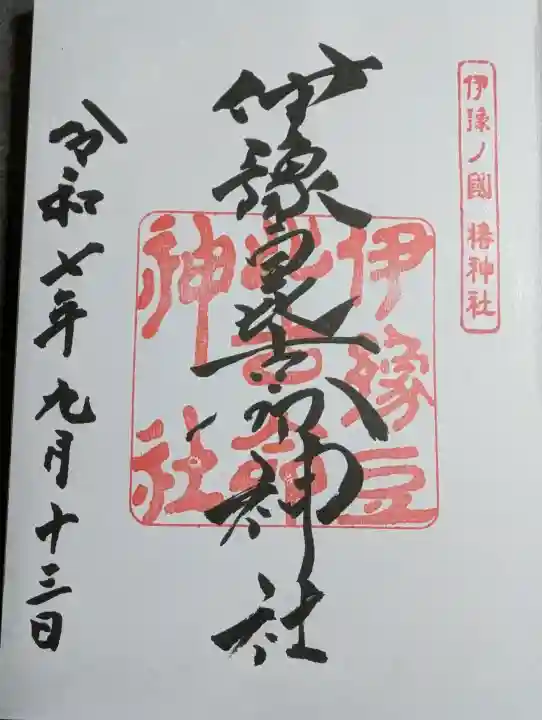 伊豫ノ國 椿神社
伊豫豆
比古命
神社
伊豫豆比古命神社
令和七年九月十三日